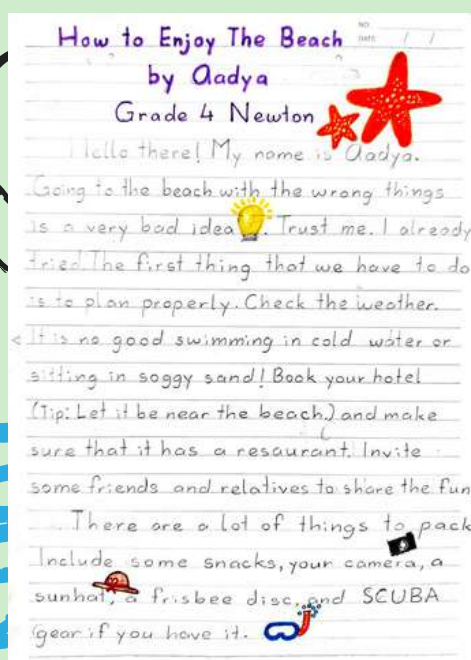 How to Enjoy The Beach
NO.
DATE / /
by Aadya
Grade 4 Newton
Hello there! My name is Aadya.
Going to the beach with the wrong things
is a very bad idea. Trust me. I already
tried. The first thing that we have to do
is to plan properly. Check the weather.
It is no good swimming in cold water or
sitting in soggy sand! Book your hotel
(Tip: Let it be near the beach.) and make
sure that it has a resaurant. Invite
some friends and relatives to share the fun
There are a lot of things to pack
Include some snacks, your camera, a
sunhat, a frisbee disc, and SCUBA
gear if you have it.